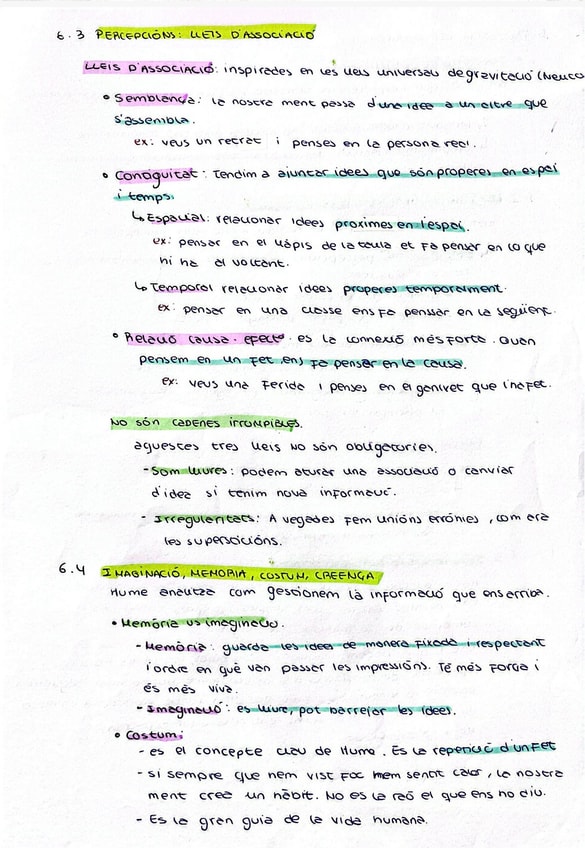 6.3 PERCEPCIÓNS: LLEIS D'ASSOCIACIÓ
LLEIS D'ASSOCIACIÓ: inspirades en les lleis universals de gravitació (Neuto
• Semblança: la nostre ment passa d'una idea a un altre que
s'assembla.
ex: veus un retrat i penses en la persona real.
• Contiguitat: Tendim a ajuntar idees que són properes en espai
i temps.
↳ Espacial: relacionar idees proximes en l'espai.
ex: pensar en el llàpis de la taula et fa pensar en lo que
hi ha al voltant.
↳ Temporal relacionar idees properes temporalment.
ex: pensar en una classe ens fa penssar en la següent.
• Relació causa-efecte. es la connexió més forta. Quan
pensem en un fet, ens fa pensar en la causa.
ex: veus una ferida i penses en el ganivet que l'ha fet.
NO SÓN CADENES IRROMPIBLES.
aquestes tres lleis no són obligatories.
- Som lliures: podem aturar una associació o canviar
d'idea si tenim nova informació.
- Irregularitats: A vegades fem unións errónies, com ara
les supersticións.
6.4 IMAGINACIÓ, MEMORIA, COSTUM, CREENÇA
Hume analitza com gestionem la informació que ens arriba.
• Memòria vs imaginació.
- Memòria: guarda les idees de manera fixada i respectant
l'ordre en què van passar les impressións. Té més força i
és més viva.
- Imaginació: es lliure, pot barrejar les idees.
• Costum:
- es el concepte clau de Hume. És la repetició d'un fet
- si sempre que hem vist foc hem sentit calor, la nostra
ment crea un hàbit. No es la raó el que ens ho diu.
- És la gran guia de la vida humana.